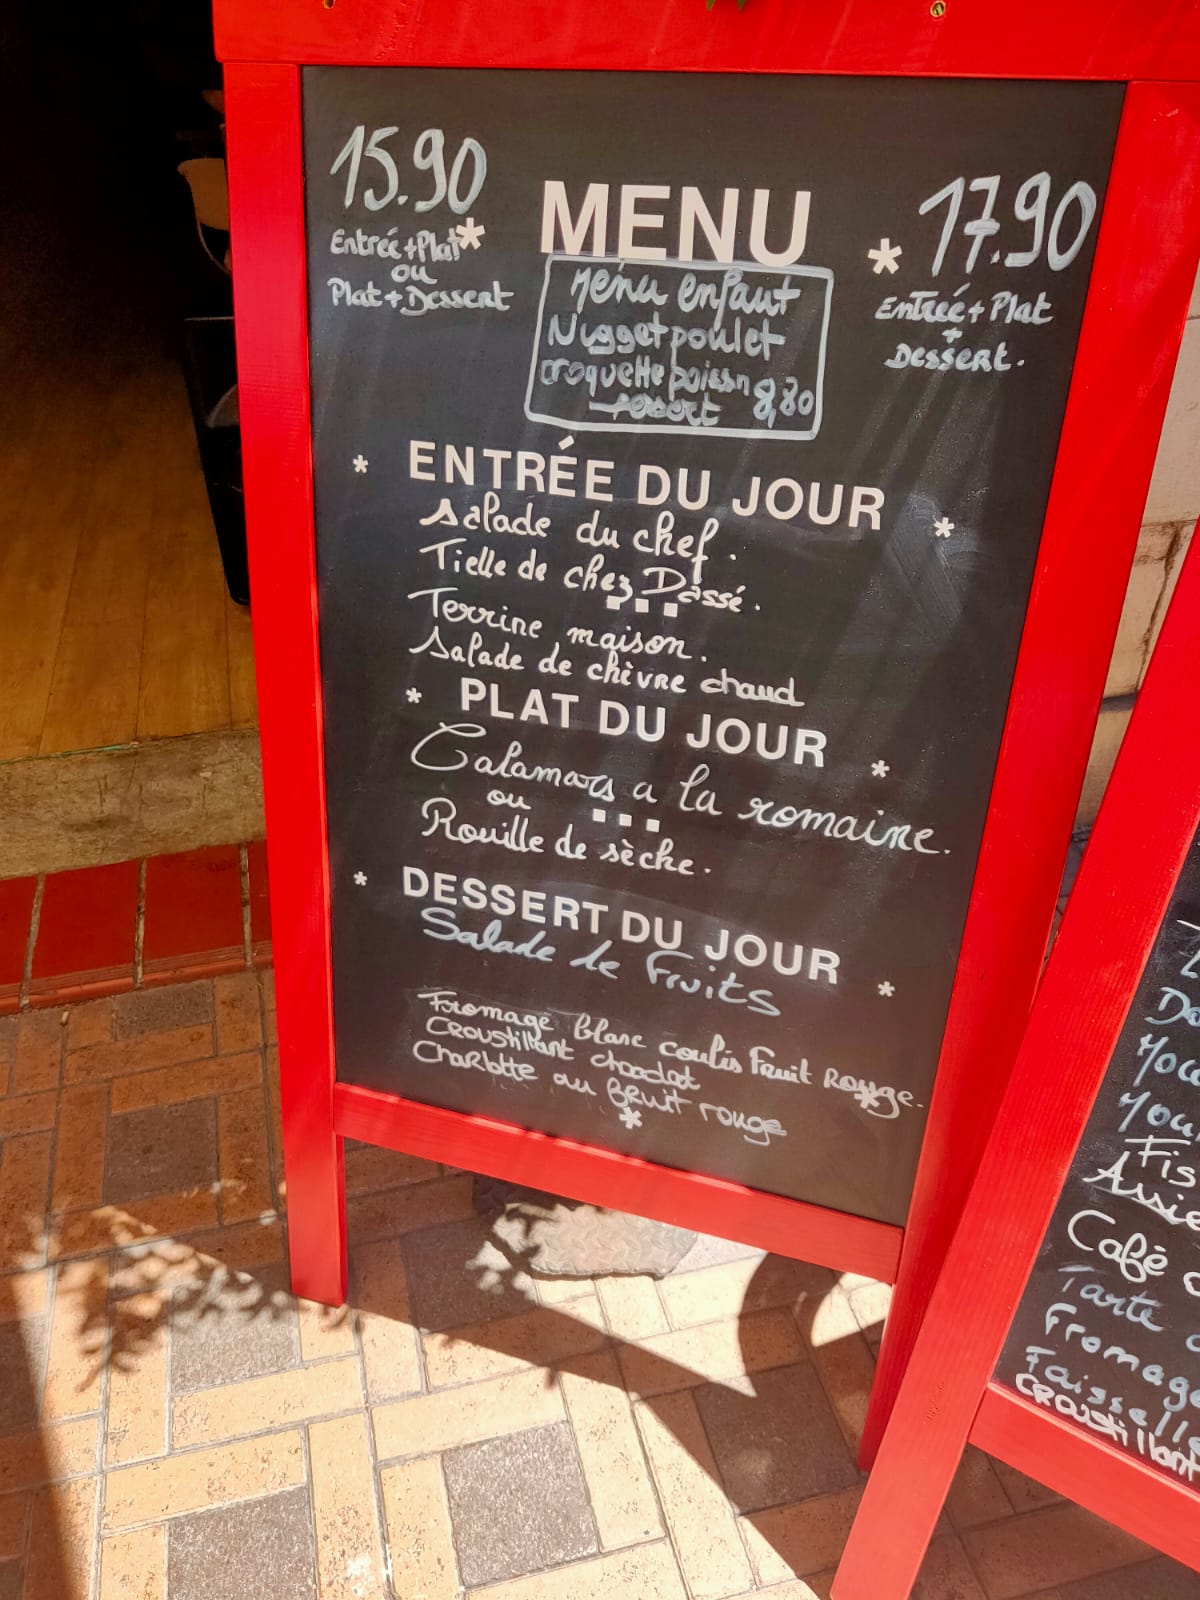 15.90
Entrée+Plat
ou
Plat+Dessert
MENU
17.90
Entrée+Plat
+
Dessert.
Menu enfant
Nugget poulet
croquette poissn 8,80
ENTRÉE DU JOUR
Salade du chef.
Tielle de chez Dassé.
Terrine maison.
Salade de chèvre chaud
PLAT DU JOUR
Calamars a la romaine.
ou
Rouille de sèche.
DESSERT DU JOUR
Salade de Fruits
Fromage blanc coulis Fruit Rouge.
Croustillant chocolat
Charlotte au fruit rouge
Fis
Assie
Café
Tarte
Fromage
Faisselle
Croustillant